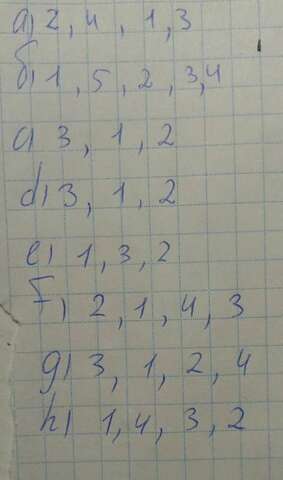 a) 2, 4, 1, 3
б) 1, 5, 2, 3, 4
a) 3, 1, 2
d) 3, 1, 2
e) 1, 3, 2
F) 2, 1, 4, 3
g) 3, 1, 2, 4
h) 1, 4, 3, 2